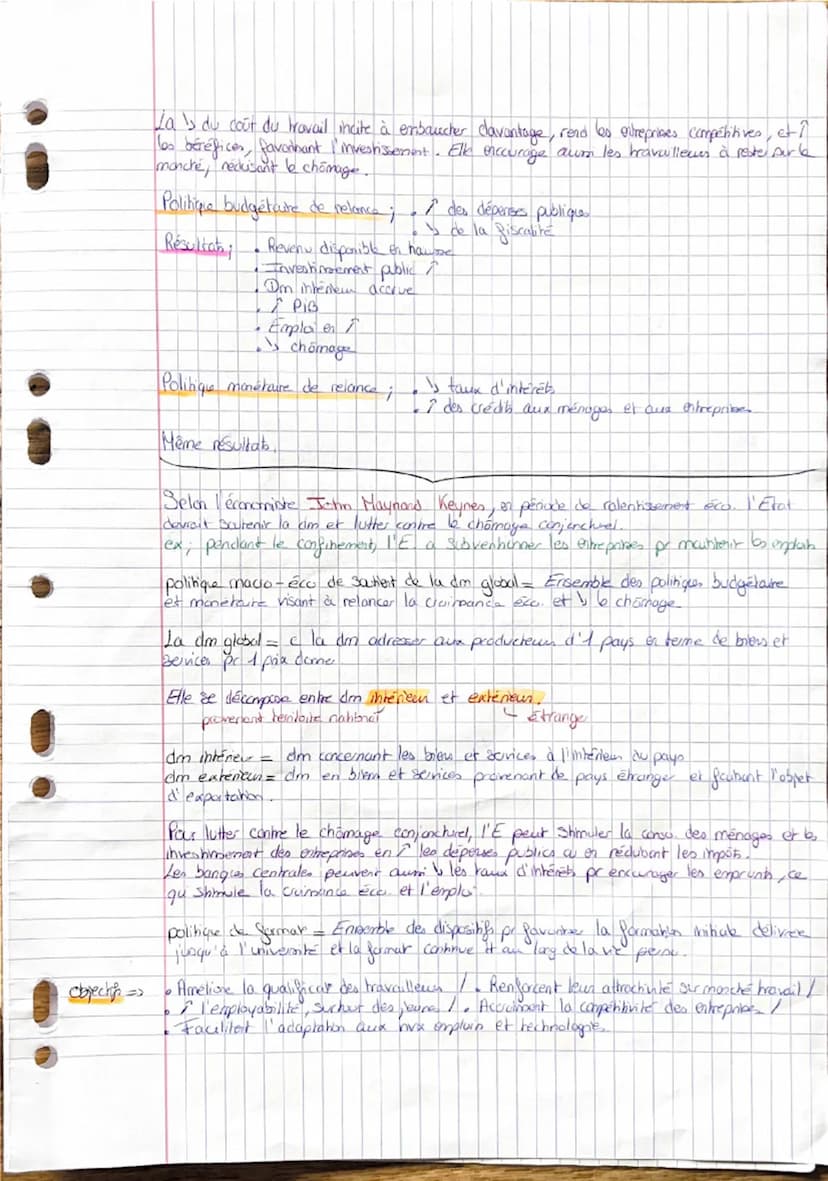 La ↘ du coût du travail incite à embaucher davantage, rend les entreprises compétitives, et ↑
les bénéfices, favorisant l'investissement. Elle encourage aussi les travailleurs à rester sur le
marché, réduisant le chômage.
Politique budgétaire de relance ; • ↑ des dépenses publiques
• ↘ de la fiscalité
Résultats ; • Revenu disponible en hausse
• Investissement public ↑
• Dm intérieur accrue
• ↑ PIB
• Emploi en ↑
• ↘ chômage
Politique monétaire de relance ; • ↘ taux d'intérêts
• ↑ des crédits aux ménages et aux entreprises
Même résultats.
Selon l'économiste John Maynard Keynes, en période de ralentissement éco. l'Etat
devrait soutenir la dm et lutter contre le chômage conjoncturel.
ex ; pendant le confinement, l'E a subventionner les entreprises pr maintenir les emplois
politique macro-éco de soutient de la dm global = Ensemble des politiques budgétaire
et monétaire visant à relancer la croissance éco. et ↘ le chômage
La dm global = c la dm adresser aux producteurs d'1 pays en terme de biens et
services pr 1 prix donné
Elle se décompose entre dm intérieur et extérieur.
provenant territoire national ↳ étranger
dm intérieur = dm concernant les biens et services à l'intérieur du pays
dm extérieur = dm en biens et services provenant de pays étranger et faisant l'objet
d'exportation.
Pour lutter contre le chômage conjoncturel, l'E peut stimuler la conso. des ménages et les
investissement des entreprises en ↑ les dépenses publics ou en réduisant les impôts.
Les banques centrales peuvent aussi ↘ les taux d'intérêts pr encourager les emprunts, ce
qui stimule la croissance éco. et l'emploi.
politique de format° = Ensemble des dispositifs pr favoriser la formation initiale délivrée
jusqu'à l'université et la format° continue tt au long de la vie
objectifs => • Améliore la qualificat° des travailleurs / • Renforcent leur attractivité sur marché travail /
• ↑ l'employabilité, surtout des jeunes / • Accroissent la compétitivité des entreprises /
• Facilitent l'adaptation aux nvx emplois et technologie.